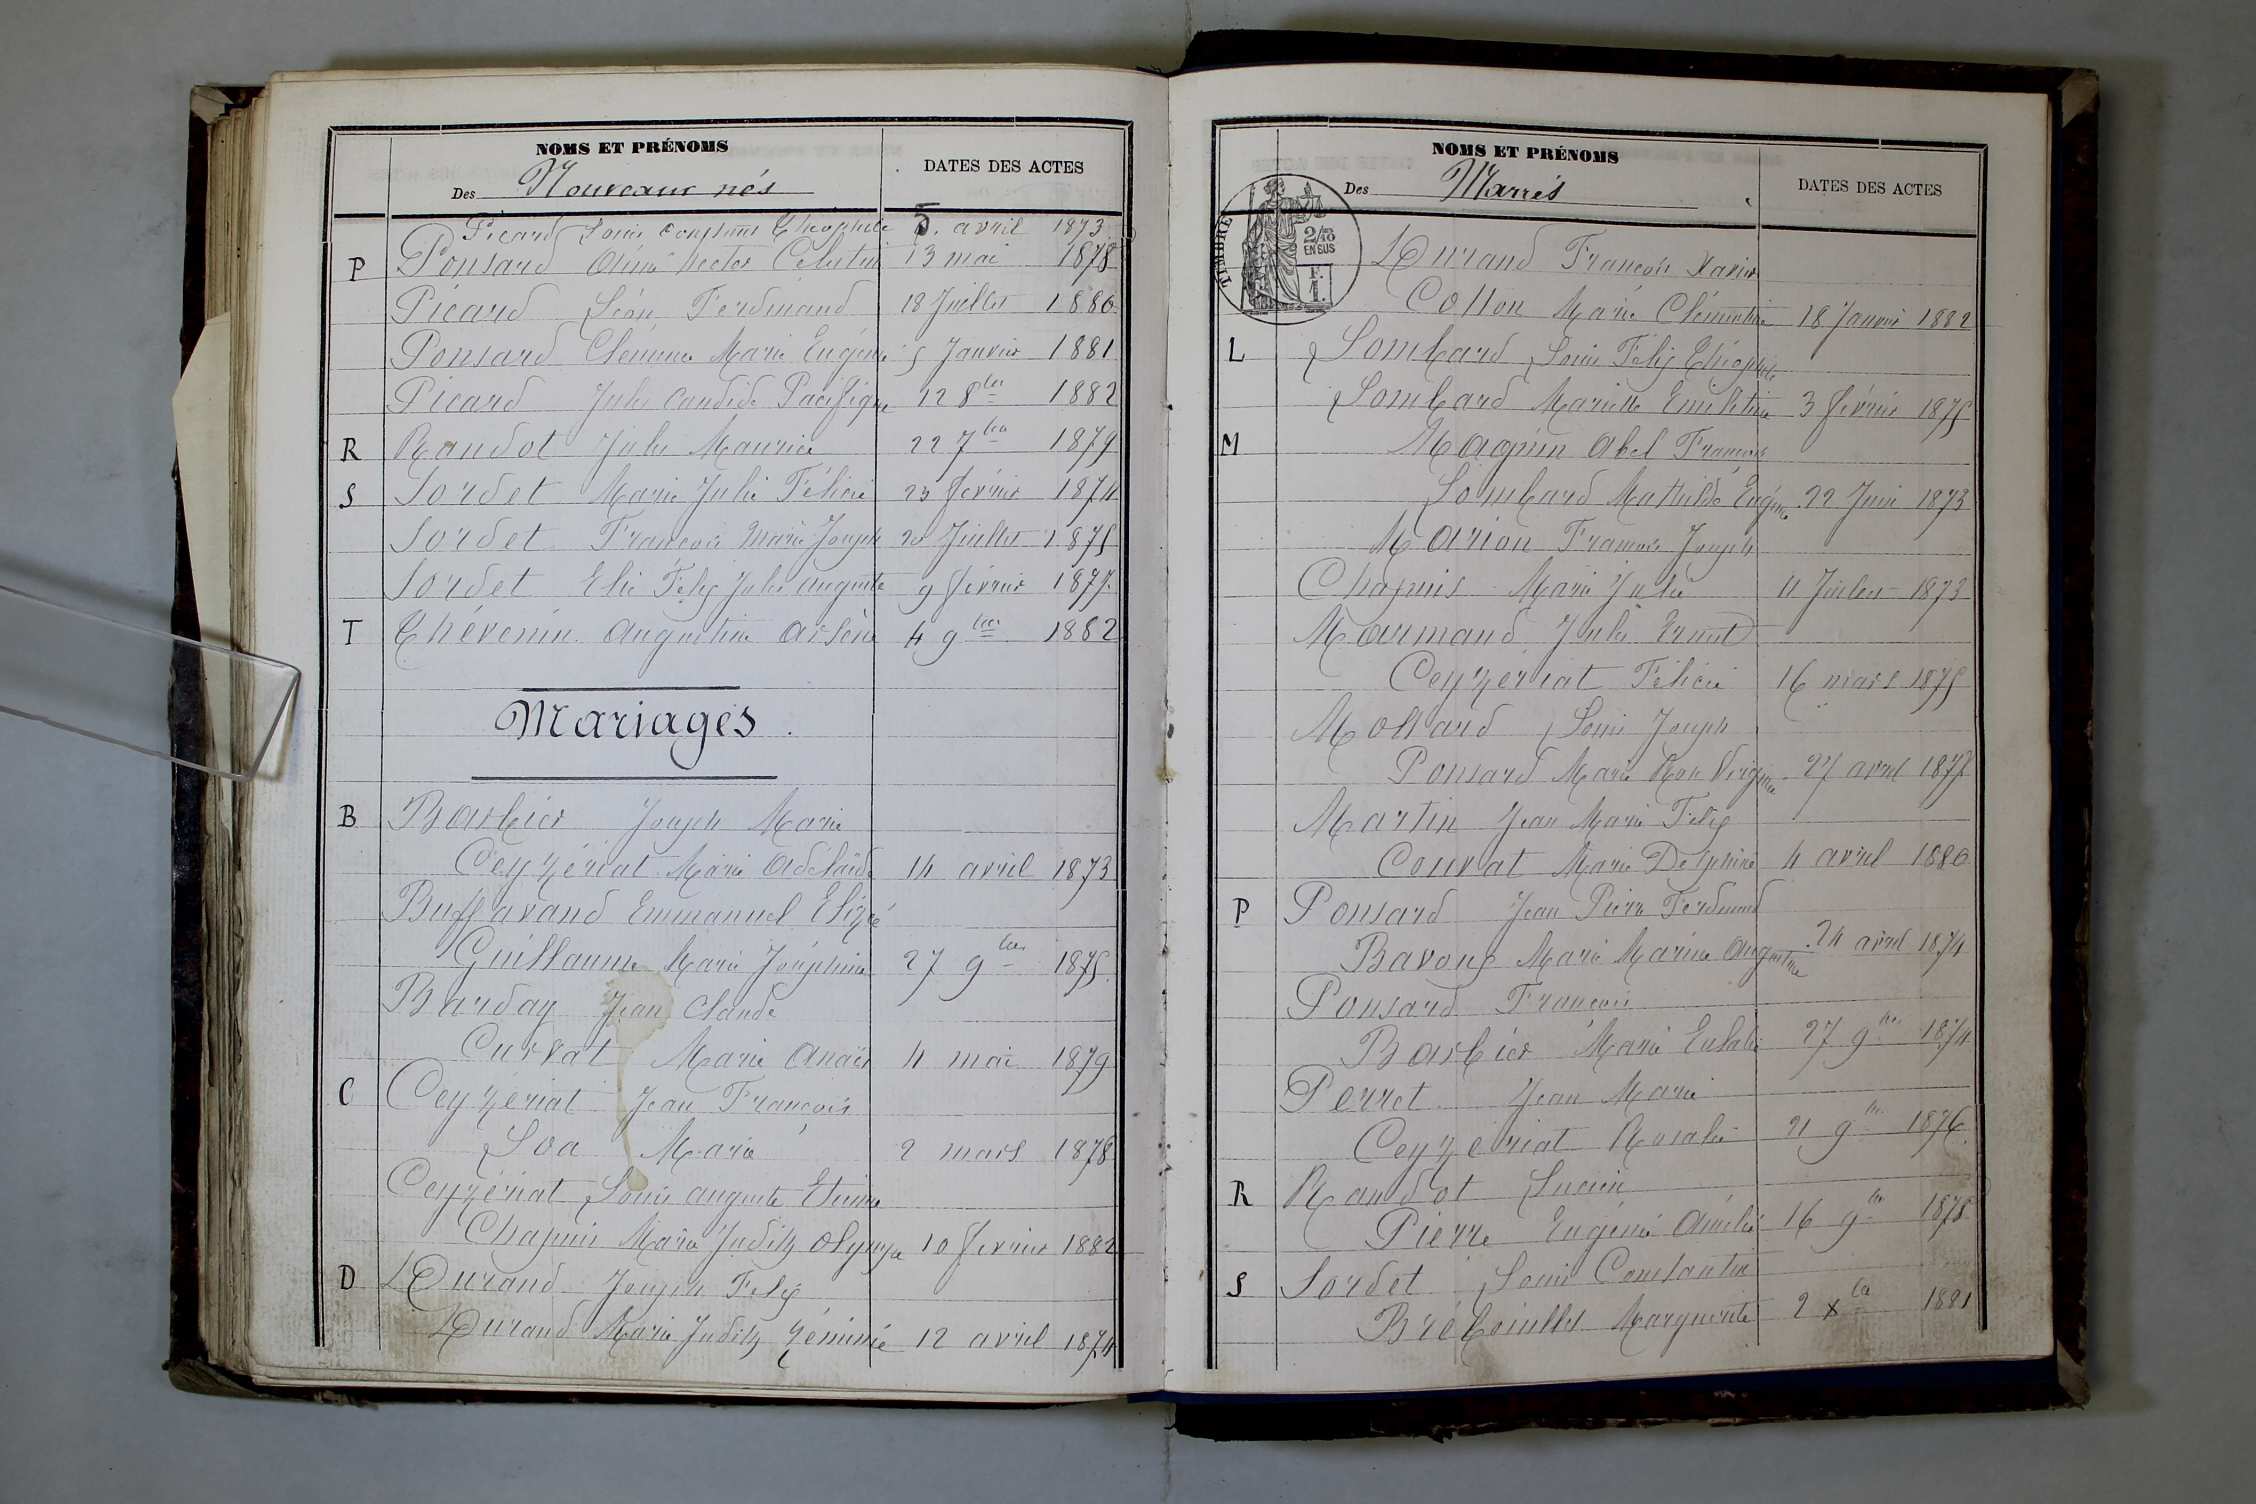 NOMS ET PRÉNOMS
Des Nouveaux nés
DATES DES ACTES
Picard Louis Constant Théophile 5. avril 1873
P Ponsard Aimé hector Célestin 13 mai 1878
Picard Léon Ferdinand 18 Juillet 1880
Ponsard Clémence Marie Eugénie 5 Janvier 1881
Picard Jules Candide Pacifique 12 8bre 1882
R Randot Jules Maurice 22 7bre 1879
S Sordet Marie Julie Félicie 23 février 1874
Sordet François Marie Joseph 20 Juillet 1875
Sordet Elie Félix Jules auguste 9 février 1877
T Thévenin Augustine Arsène 4 9bre 1882
Mariages.
B Barbier Joseph Marie
Ceyzériat Marie Adélaïde 14 avril 1873
Buffavand Emmanuel Elizé
Guillaume Marie Joséphine 27 9bre 1875
Barday Jean Claude
Curvat Marie Anaïs 4 mai 1879
C Ceyzériat Jean François
Loa Marie 2 mars 1878
Ceyzériat Louis auguste Etienne
Chapuis Marie Judith Olympe 10 février 1882
D Durand Joseph Félix
Durand Marie Judith Zéminie 12 avril 1874
NOMS ET PRÉNOMS
Des Mariés
DATES DES ACTES
TIMBRE
2/10
EN SUS
F.
1.
Durand François Xavier
Collon Marie Clémentine 18 Janvier 1882
L Lombard Louis Félix Théophile
Lombard Mariette Emilitine 3 février 1875
M Magnin Abel François
Lombard Mathilde Eugénie 22 Juin 1873
Marion François Joseph
Chapuis Marie Julie 11 Juillet 1873
Marmand Jules Ernest
Ceyzériat Félicie 16 mars 1875
Mollard Louis Joseph
Ponsard Marie Rose Virginie 27 avril 1878
Martin Jean Marie Félix
Couvat Marie Delphine 4 avril 1880
P Ponsard Jean Pierre Ferdinand
Bavoux Marie Marina Augustine 24 avril 1874
Ponsard François
Barbier Marie Eulalie 27 9bre 1874
Perret Jean Marie
Ceyzériat Rosalie 21 9bre 1876
R Randot Lucien
Pierre Eugénie Amélie 16 9bre 1878
S Sordet Louis Constantin
Brébouillet Marguerite 2 Xbre 1881